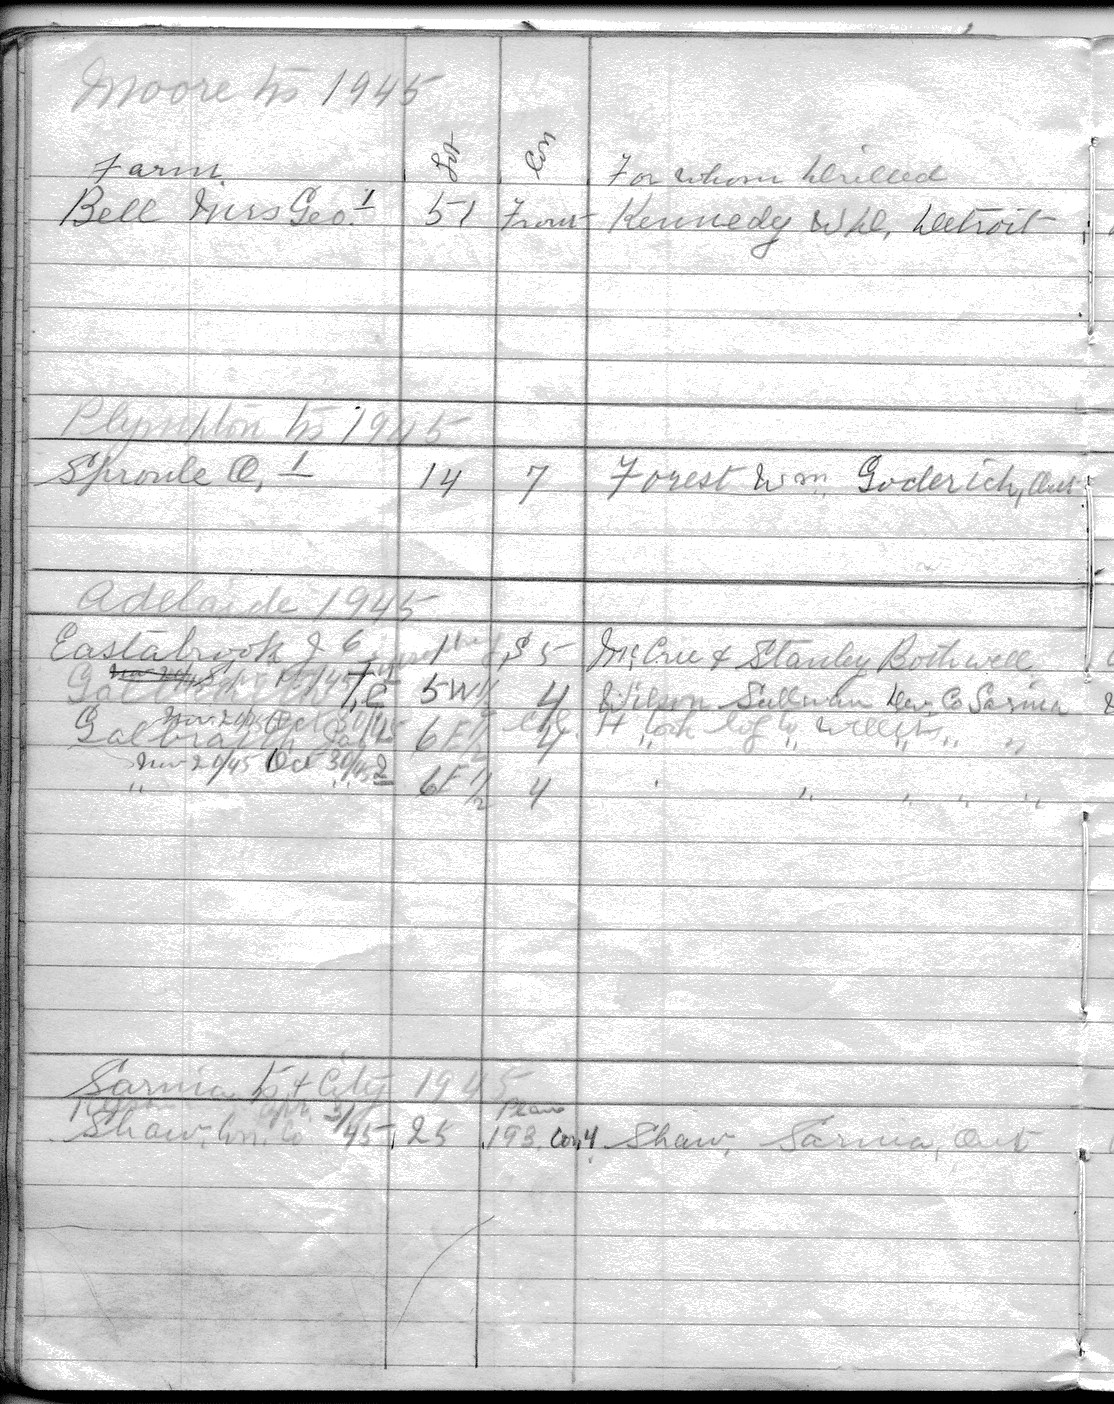 Moore tp 1945
Farm Lot Con For whom Drilled
Bell Mrs Geo. 1 51 Front Kennedy W D, Detroit
Plympton tp 1945
Sproule O, 1 14 7 Forest Wm, Goderich, Ont
Adelaide 1945
Eastabrook J 6 1 S 5 McCrie & Stanley Bothwell
1, 5 W 1/2 4 Wilson Sullivan Dev. Co Sarnia
Nov 20/45 Oct 30/45
Galbraith 6 E 1/2 4 " " " " "
Nov 20/45 Oct 30/45 2
" " 6 E 1/2 4 " " " " "
Sarnia tp & City 1945
Apr. 3/45 Plan
Shaw, Con. Co 25 193 Con 4 Shaw, Sarnia, Ont